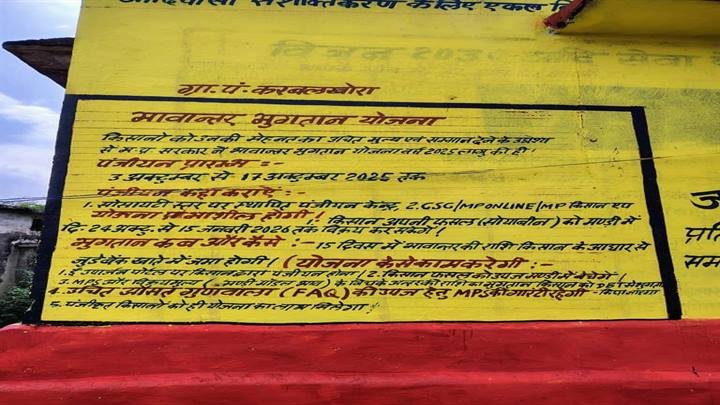 आदिवासी सशक्तिकरण के लिए एकल
विजन 2030
ग्रा.पं.- करबलखोरा
भावान्तर भुगतान योजना
किसानो को उनकी मेहनत का उचित मुल्य एवं सम्मान देने के उद्देश्य
से म.प्र. सरकार ने भावान्तर भुगतान योजना वर्ष 2025 लागु की है।
पंजीयन प्रारम्भ :-
3 अक्टूम्बर से 17 अक्टुम्बर 2025 तक
पंजीयन कहा कराऐ :-
1. सोसायटी स्तर पर स्थापित पंजीयन केन्द्र, 2. CSC/MPONLINE/MP किसान एप
योजना प्रभाशील होगी! किसान अपनी फसल (सोयाबीन) को मण्डी में
दि- 24 अक्टु. से 15 जनवरी 2026 तक विक्रय कर सकेंगे।
भुगतान कब और कैसे :- 15 दिवस में भावान्तर की राशि किसान के आधार से
जुडे बैंक खाते में जमा होगी। (योजना कैसे काम करेगी :-
1. ई उपार्जन पोर्टल पर किसान द्वारा पंजीयन होगा। 2. किसान फसल को उपज मण्डी में बेचेंगे।
3. MPS और विक्रय मुल्य (मण्डी मॉडल भाव) के बिच के अन्तर की राशि का भुगतान किसान को DBT से
4. उचित औसत गुणवाला (FAQ) की उपज हेतु MPS की गारंटी रहेगी -
5. पंजीकृत किसानो को ही योजना का लाभ मिलेगा।